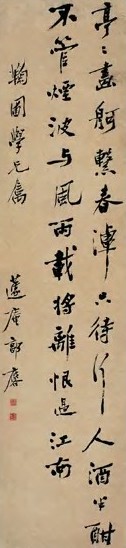 亭〻畫舸繫春潭只待行人酒半酣
不管煙波与風雨載將離恨過江南
鞠圃學兄屬
蘧庵郭麐